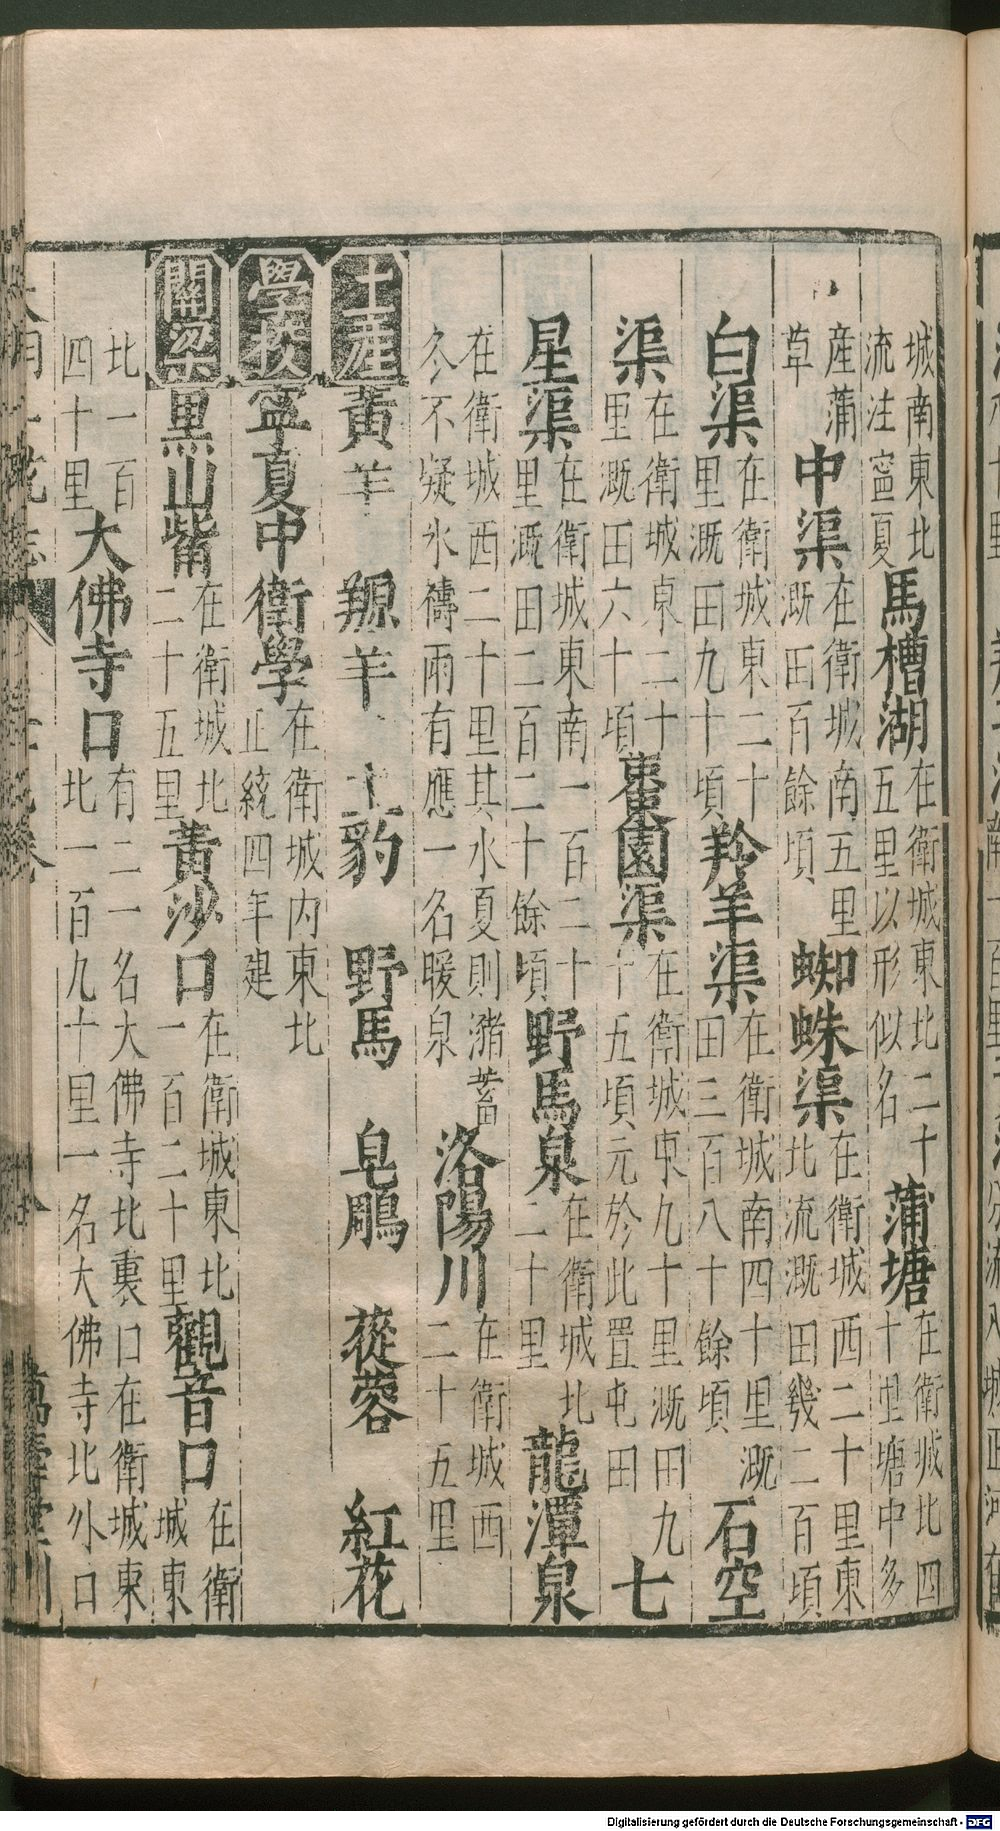 城南東北流注寧夏馬槽湖在衛城東北二十五里以形似名蒲塘在衛城北四十里塘中多
産蒲草中渠在衛城南五里溉田百餘頃蜘蛛渠在衛城西二十里東北流溉田幾二百頃
白渠在衛城東二十里溉田九十頃羚羊渠在衛城南四十里溉田三百八十餘頃石空
渠在衛城東二十里溉田六十頃棗園渠在衛城東九十里溉田九十五頃元於此置屯田七
星渠在衛城東南一百二十里溉田二百二十餘頃野馬泉在衛城北二十里龍潭泉
在衛城西二十里其水夏則瀦蓄冬不凝氷禱雨有應一名暖泉洛陽川在衛城西二十五里
土産黃羊 羱羊 土豹 野馬 皂鵰 蓯蓉 紅花
學校寧夏中衛學在衛城内東北正統四年建
關梁黑山觜在衛城北二十五里黃沙口在衛城東北一百二十里觀音口在衛城東
北一百四十里大佛寺口有二一名大佛寺北裏口在衛城東北一百九十里一名大佛寺北外口
萬壽堂刊
Digitalisierung gefördert durch die Deutsche Forschungsgemeinschaft - DFG